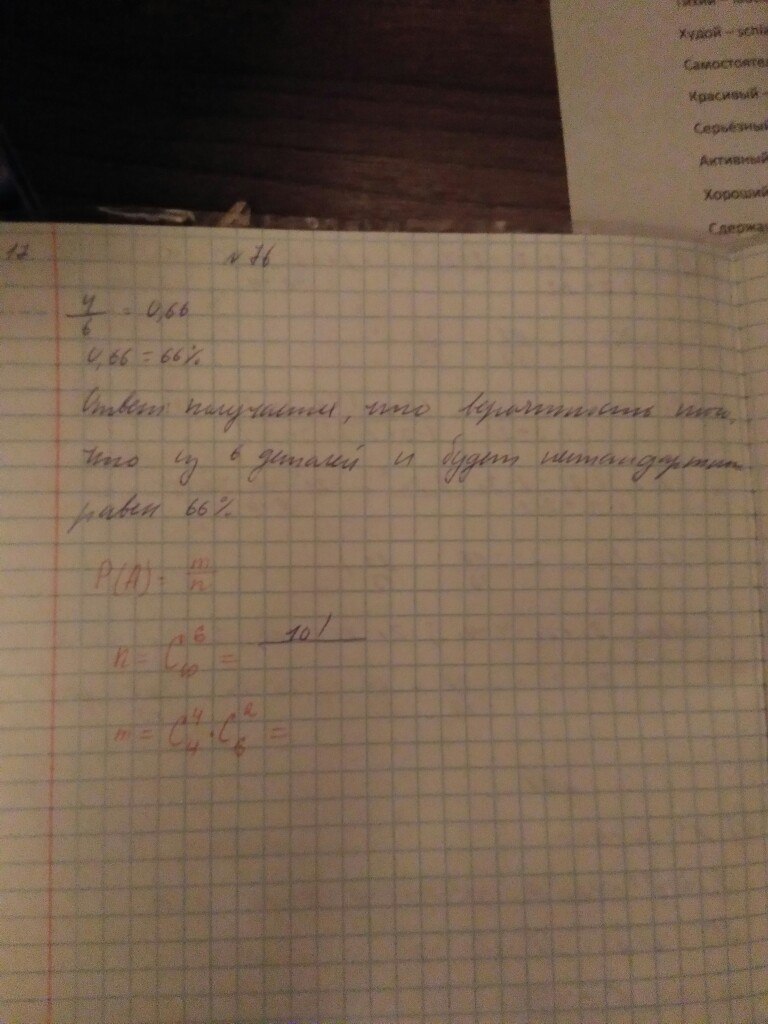 Худой –
Самостояте
Красивый –
Серьёзный
Активный
Хороший
Сдержа
17 № 76
4/6 = 0,66
0,66 = 66%
Ответ: получается, что вероятность того,
что из 6 деталей 4 будет нестандартн
равен 66%
P(A) = m/n
n = C₁₀⁶ = 10!
m = C₄⁴ · C₆² =